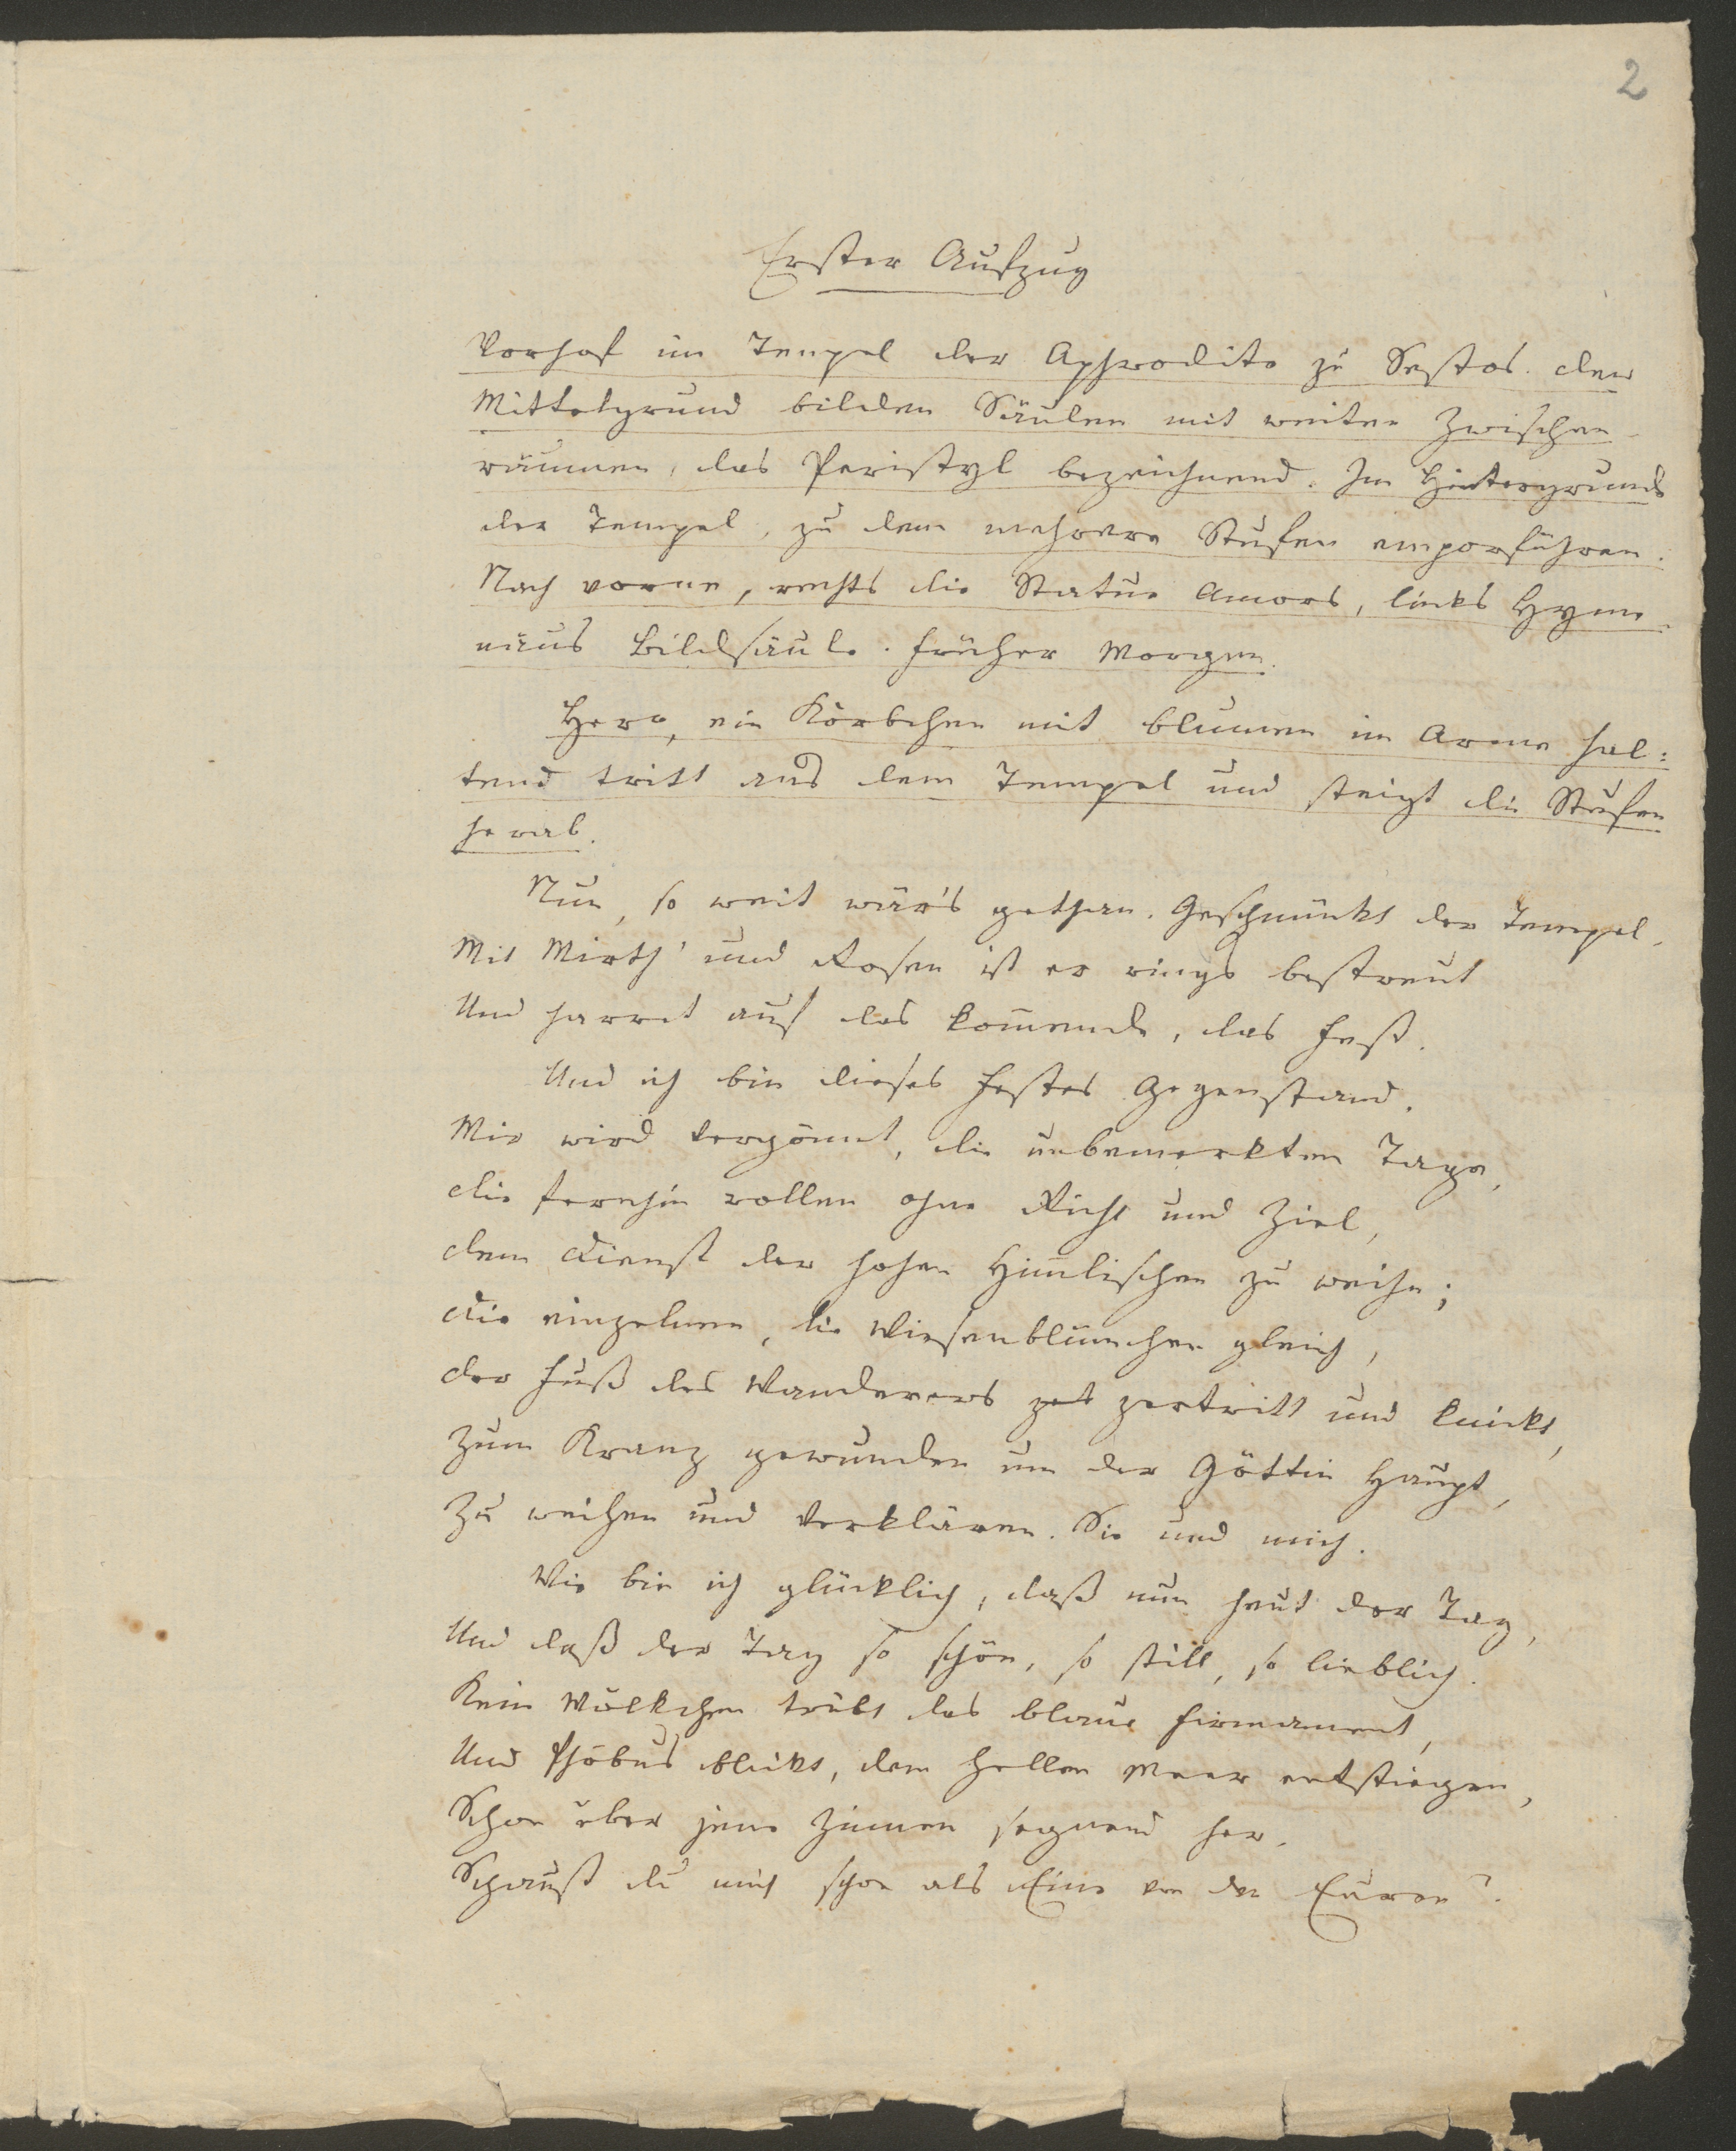 2
Erster Aufzug
Vorhof im Tempel der Aphrodite zu Sestos. den
Mittelgrund bilden Säulen mit weiten Zwischen-
räumen, das Peristyl bezeichnend. Im Hintergrunde
der Tempel, zu dem mehrere Stufen emporführen.
Nach vorne, rechts die Statue Amors, links Hyme-
näus Bildsäule. früher Morgen.
Hero, ein Körbchen mit Blumen im Arme hal:
tend tritt aus dem Tempel und steigt die Stufen
herab.
Nun, so weit wär's gethan. Geschmückt der Tempel.
Mit Mirth' und Rosen ist er rings bestreut
Und harret auf das kom̄ende, das Fest.
Und ich bin dieses Festes Gegenstand.
Mir wird vergönnt, die unbemerkten Tage,
die fernhin rollen ohne Richt und Ziel,
dem Dienst der hohen Him̄lischen zu weihn;
Die einzelnen, die Wiesenblümchen gleich,
der Fuß des Wanderers zet zertritt und knickt,
Zum Kranz gewunden um der Göttin Haupt,
Zu weihen und verklären. Sie und mich.
Wie bin ich glücklich, daß nun heut der Tag,
Und daß der Tag so schön, so still, so lieblich.
Kein Wölkchen trübt das blaue Firmament,
Und Phöbus blickt, dem hellen Meer entstiegen,
Schon über jene Zinnen segnend her.
Schaust du mich schon als Eine von den Euren?